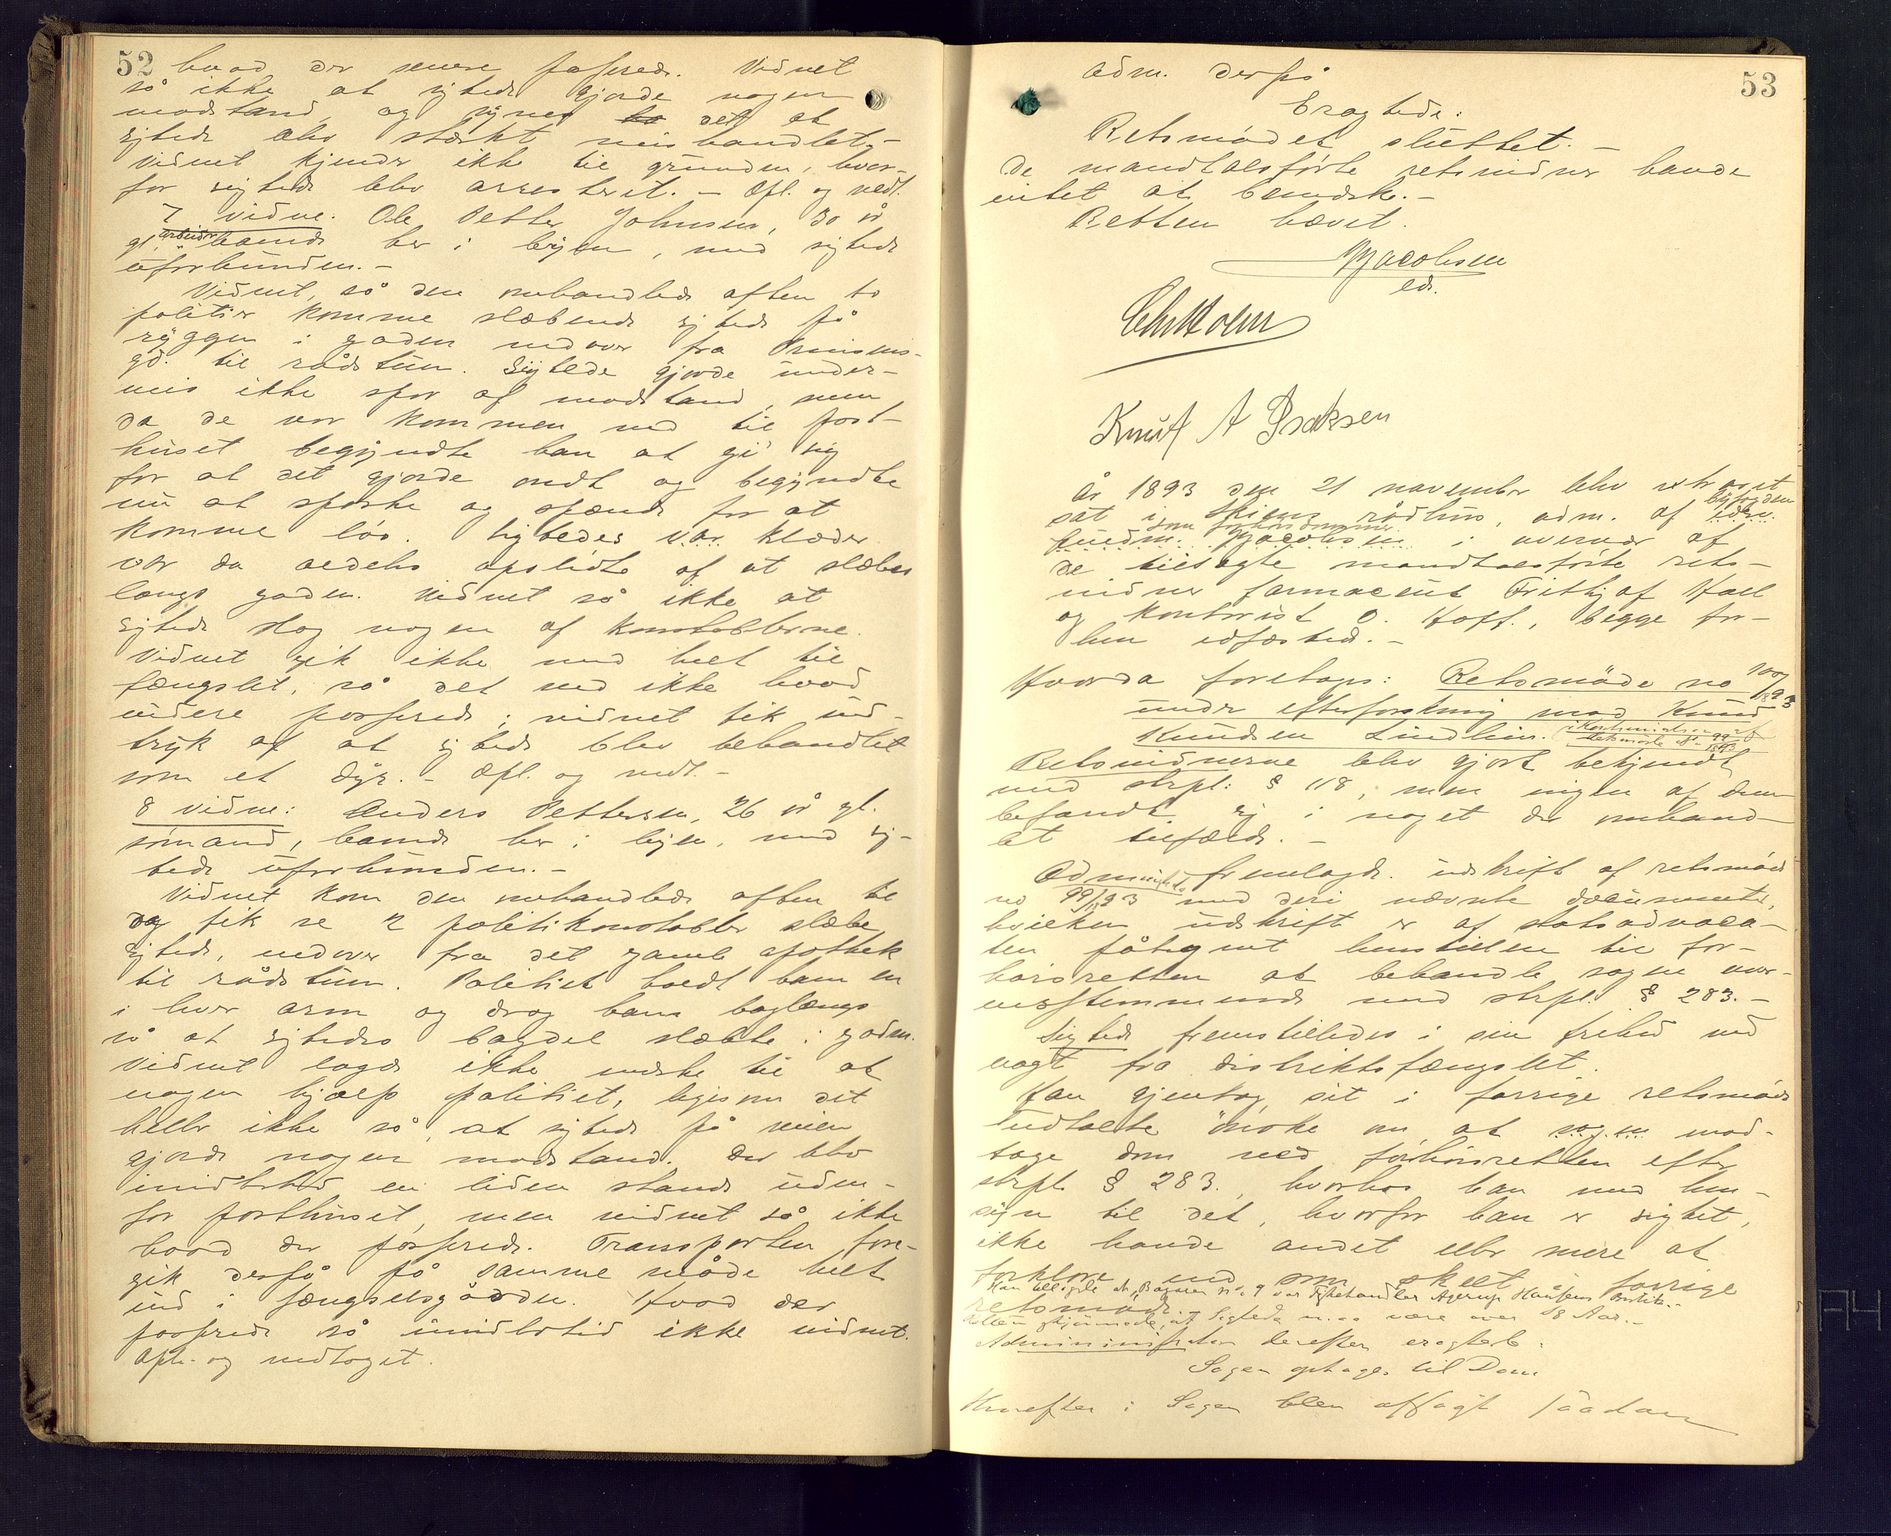 52
hvad der senere passerede. Vidnet
så ikke at sigtede gjorde nogen
modstand, og synes det at
sigtede blev stærkt mishandlet. -
Vidnet kjender ikke til grunden, hvor-
for sigtede blev arresteret. - Opl. og vedt.
7 vidne. Ole Petter Johnsen, 30 år
gl. arbeider hands her i byen, med sigtede
uforbunden. -
Vidnet så den omhandlede aften to
politir komme slæbende sigtede på
ryggen i gaden nedover fra
gd. til rådstuen. Sigtede gjorde under-
veis ikke spor af modstand, men
da de var kommen ned til post-
huset begyndte han at gi sig
for at det gjorde ondt og begyndte
nu at sparke og spænde for at
komme løs. Sigtedes var klæder
var da aldeles opslidte af at slæbes
langs gaden. Vidnet så ikke at
sigtede slog nogen af konstablerne.
Vidnet gik ikke med helt til
fængslet, så det ved ikke hvad
videre passerede; vidnet fik ind-
tryk af at sigtede blev behandlet
som et dyr. - Opl. og vedt. -
8 vidne: Anders Pettersen, 26 år gl.
sømand, hands her i byen, med sig-
tede uforbunden. -
Vidnet kom den omhandlede aften til
og fik se 2 politikonstabler slæbe
sigtede, nedover fra det gamle apothek
til rådstuen. Politiet holdt ham en
i hver arm og drog ham baglængs
så at sigtedes bagdel slæbte i gaden.
Vidnet lagde ikke mærke til at
nogen hjalp politiet, ligesom det
heller ikke så, at sigtede på veien
gjorde nogen modstand. Der blev
imidlertid en liden stands uden-
for posthuset, men vidnet så ikke
hvad der passerede. Transporten fore-
gik derpå på samme måde helt
ind i fængselsgården. Hvad der
passerede så imidlertid ikke vidnet.
Opl. og vedtaget.
53
Adm. derpå
Eragtede:
Retsmødet sluttet. -
De mandtalsførte retsvidner havde
intet at bemærke. -
Retten hævet.
Jacobsen
cd.
Chr Holm
Knut A Isaksen
År 1893 den 21 november blev extraret
sat i Skiens rådstue, adm. af byfogdens
edsv.
fuldm. Jacobsen som forhørsdommer i overvær af
de tilsagte mandtalsførte rets-
vidner farmaceut Frithjof Hall
og kontorist O. Hoff, begge for-
hen edfæstede. -
Hvorda foretoges: Retsmøde no 100/1893
under efterforskning mod Knud
Knudsen Lindlien. i Kontinuation af
Retsmøde No 99 1893
Retsvidnerne blev gjort bekjendt
med strpl. § 118, men ingen af dem
befandt sig i noget der omhand-
let tilfælde. -
Adminstr. fremlagde udskrift af retsmøde
no 99/1893 med deri nævnte documenter,
hvilken udskrift er af statsadvoca-
ten påtegnet henstillen til for-
hørsretten at behandle sagen over-
ensstemmende med strpl. § 283. -
Sigtede fremstilledes i sin frihed med
vagt fra distriktsfængslet.
Han gjentog sit i forrige retsmøde
udtalte ønske om at sagen mod-
tage dom ved forhørsretten efter
strpl. § 283, hvorhos han med hen-
syn til det, hvorfor han er sigtet,
ikke havde andet eller mere at
forklare end som skeet i forrige
Han tilføiede at Bagaren var Fiskehandler Agerup Hansens Butik. -
retsmøde. -
Retten skjønnede, at Sigtede m.aa være over 18 Aar. -
Administrator derefter eragtet:
Sagen optages til Dom
Herefter i Sagen blev afsagt saadan